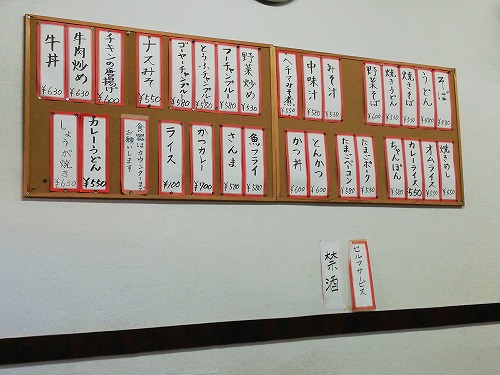 そば
うどん
焼きそば
焼きうどん
野菜そば
みそ汁
中味汁
ヘチマみそ煮
野菜炒め ¥530
フーチャンプルー ¥580
とうふチャンプル ¥580
ゴーヤーチャンプル ¥580
ナスみそ ¥550
チキンの唐揚げ ¥600
牛肉炒め ¥630
牛丼 ¥630
焼きめし
オムライス ¥550
カレーライス 550
ちゃんぽん ¥580
たまごポーク
たまごベーコン ¥580
とんかつ
かつ丼
魚フライ ¥580
さんま ¥580
かつカレー ¥700
ライス ¥100
食器はカウンターまで
お願いします
カレーうどん ¥550
しょうが焼き ¥630
セルフサービス
禁酒